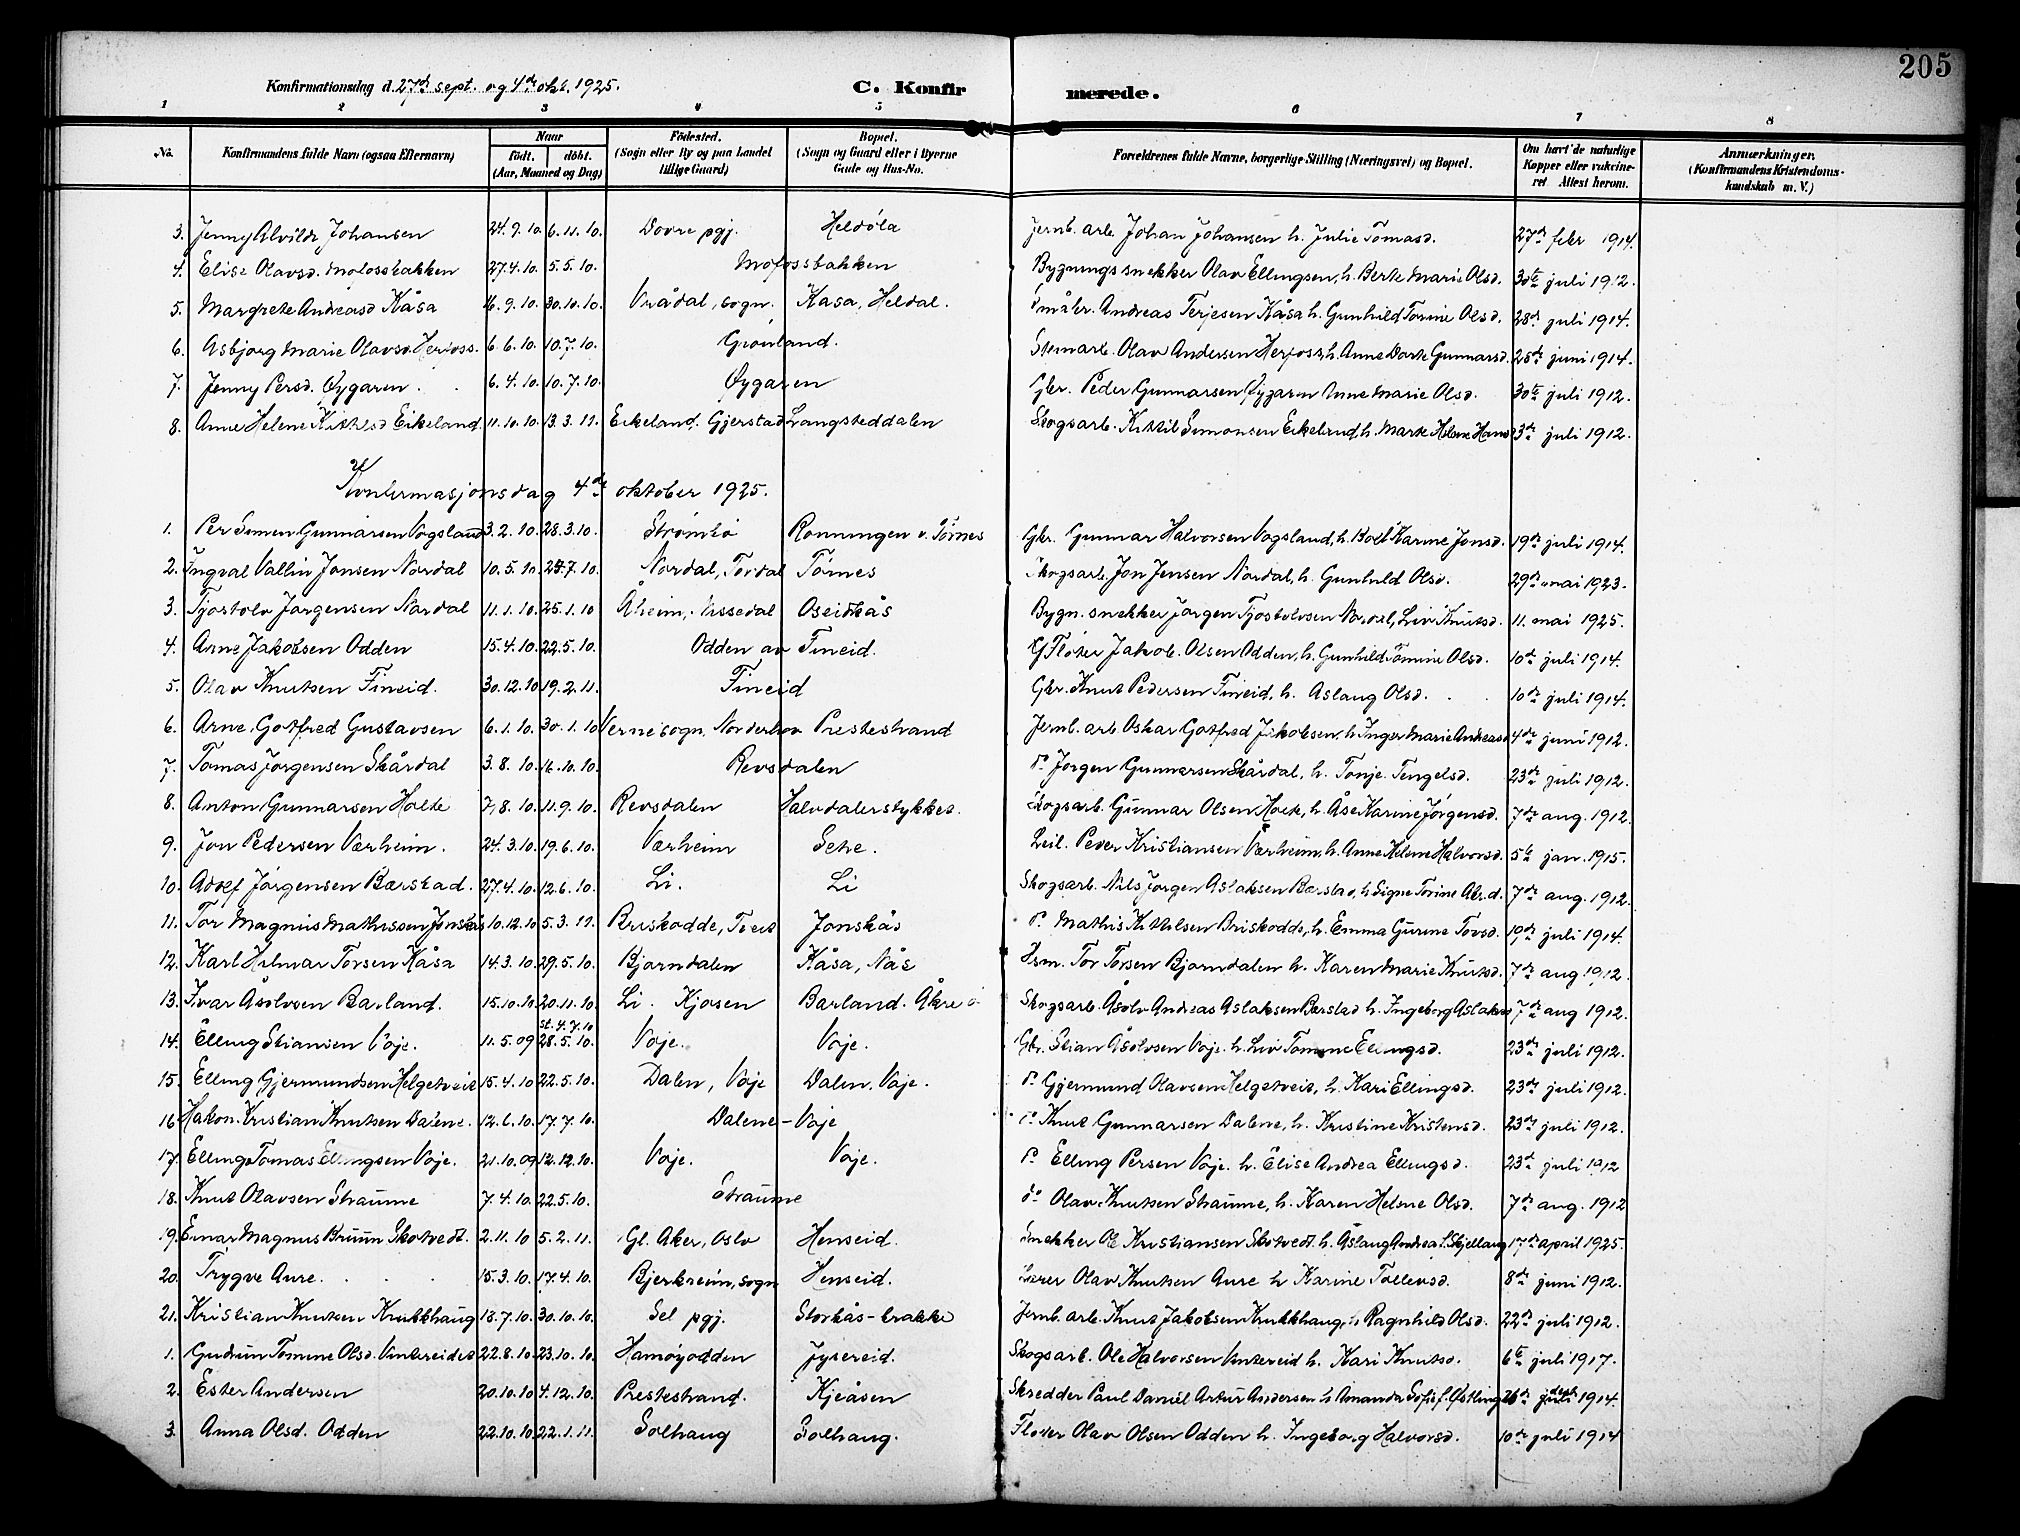 205
Konfirmationsdag d. 27de sept. og 4de okt. 1925.
C. Konfirmerede.
1 2 3 4 5 6 7 8
No. Konfirmandens fulde Navn (ogsaa Efternavn) Naar født. døbt. (Aar, Maaned og Dag) Fødested. (Sogn eller By og paa Landet tillige Gaard) Bopæl. (Sogn og Gaard eller i Byerne Gade og Hus-No. Forældrenes fulde Navne, borgerlige Stilling (Næringsvei) og Bopæl. Om havt de naturlige Kopper eller vakcineret Attest herom. Anmærkninger. (Konfirmandens Kristendomskundskab m. V.)
3. Jenny Alvilde Johansen 24.9.10. 6.11.10. Dovre pgj. Heldøla Jernb. arb. Johan Johansen h. Julie Tomasd. 27de febr 1914.
4. Elise Olavsd. Mofossbakken 27.4.10. 5.5.10. Mofossbakken Bygningssnekker Olav Ellingsen, h. Berte Marie Olsd. 30te juli 1912.
5. Margrete Andreasd Kåsa 16.9.10. 30.10.10. Vrådal, sogn. Kåsa, Heldal. Småbr. Andreas Terjesen Kåsa h. Gunhild Tomine Olsd. 28de juli 1914.
6. Asbjørg Marie Olavsd. Herfoss. 6.6.10. 10.7.10. Grønland. Stenarb. Olav Andersen Herfoss, h. Anne Dorte Gunnarsd. 28de juni 1914.
7. Jenny Persd. Øygaren. 6.4.10. 10.7.10. Øygaren Gbr. Peder Gunnarsen Øygaren Anne Marie Olsd. 30te juli 1912.
8. Anne Helene Kittilsd Eikeland 11.10.10. 13.3.11. Eikeland, Gjerstad Langsteddalen Skogsarb. Kittil Simonsen Eikelnd, h. Marte Helene Hansd 3de juli 1912.
Konfirmasjonsdag 4de oktober 1925.
1. Per Simen Gunnarsen Vogsland 3.2.10. 28.3.10. Strømbø Rønningen v. Tørnes Gbr. Gunnar Halvorsen Vogsland, h. Karine Jonsd. 19de juli 1914.
2. Ingval Vallin Jonsen Nordal 10.5.10. 24.7.10. Nordal, Tørdal Tørnes Skogsarb. Jon Jensen Nordal, h. Gunhild Olsd. 29de mai 1923.
3. Tjostolv Jørgensen Nordal 11.1.10. 25.1.10 Åheim, Nissedal Oseidkås Bygn. snekker Jørgen Tjostolvsen Nordal, Liv Knutsd. 11. mai 1925.
4. Arne Jakobsen Odden 15.4.10. 22.5.10. Odden av Fineid. Fløter Jakob Olsen Odden, h. Gunhild Tomine Olsd. 10de juli 1914.
5. Olav Knutsen Fineid. 30.12.10 19.2.11. Fineid Gbr. Knut Pedersen Fineid, h. Aslaug Olsd. 10de juli 1914.
6. Arne Gotfred Gustavsen 6.1.10. 30.1.10 Verne sogn, Norderhov Prestestrand Jernb. arb. Oskar Gotfred Jakobsen, h Inger Marie Andreasd 4de juni 1912.
7. Tomas Jørgensen Skårdal 3.8.10. 16.10.10. Revsdalen do Jørgen Gunnarsen Skårdal, h. Tonje Tengelsd. 23de juli 1912.
8. Anton Gunnarsen Holte 7.8.10. 11.9.10. Revsdalen Halvdalerstykket. Skogsarb. Gunnar Olsen Holte, h. Åse Karine Jørgensd. 7de aug. 1912.
9. Jon Pedersen Værheim. 24.3.10. 19.6.10. Værheim Seke. Leil. Peder Kristiansen Værheim, h. Anne Helene Halvorsd. 5te jan. 1915.
10. Adolf Jørgensen Bærstad. 27.4.10. 12.6.10. Li. Li Skogsarb. Nils Jørgen Aslaksen Bærstad, h. Signe Torine Abr.d. 7de aug. 1912.
11. Tor Magnus Mathissen Jonskås 10.12.10 5.3.11. Briskodde, Tveit Jonskås do Mathis Kittilsen Briskodde, h. Emma Gurine Tovsd. 19de juli 1914.
12. Karl Hilmar Torsen Kåsa 14.3.10. 29.5.10. Bjørndalen Kåsa, Nås Hsm. Tor Torsen Bjørndalen h. Karen Marie Knutsd. 7de aug 1912.
13. Ivar Åsolvsen Barland. 15.10.10 20.11.10. Li. Kjosen Barland. Åkre Skogsarb. Åsolv Andreas Aslaksen Bærstad h. Ingeborg Aslaksd 7de aug 1912.
14. Elling Stiansen Voje. 11.5.09 st. 4.7.10 28.5.10. Voje. Voje. Gbr. Stian Åsolvsen Voje h. Liv Tomine Ellingsd. 23de juli 1912.
15. Elling Gjermundsen Helgetveit 15.4.10 22.5.10. Dalen, Voje Dalen, Voje. do Gjermund Olavsen Helgetveit, h. Kari Ellingsd. 23de juli 1912.
16. Håkon Kristian Knutsen Dalene. 12.6.10. 17.7.10. Dalene - Voje do Knut Gunnarsen Dalene, h. Kristine Kristensd. 23de juli 1912.
17. Elling Tomas Ellingsen Voje. 21.10.09 12.12.10. Voje. Voje. do Elling Persen Voje. h. Elise Andrea Ellingsd. 23de juli 1912
18. Knut Olavsen Straume 7.4.10. 22.5.10. Straume do Olav Knutsen Straume, h. Karen Helene Olsd. 7de aug. 1912
19. Einar Magnus Bruun Skotvedt. 2.11.10 5.2.11. Gl. Aker, Oslo Henseid. Snekker Ole Kristiansen Skotvedt h. Åslaug Andrea f. Skjellaug 17de april 1925.
20. Trygve Aure. 15.3.10. 17.4.10. Bjerkreim, sogn Henseid. Lærer Olav Knutsen Aure h Karine Tollevsd. 8de juni 1912.
21. Kristian Knutsen Krukkhaug 18.7.10. 30.10.10. Sel pgj. Storkås-brakke Jernb. arb. Knut Jakobsen Krukkhaug h Ragnhild Olsd. 22de juli 1912.
1. Gudrun Tomine Olsd. Vintereidet 22.8.10. 23.10.10. Hamøyodden Jysereid. Skogsarb. Ole Halvorsen Vintereid h. Kari Knutsd. 6te juli 1917.
2. Ester Andersen 20.10.10 4.12.10. Prestestrand. Kjeåsen Skredder Paul Daniel Artur Andersen h Amanda Sofie f. Østling 26de juli 1914.
3. Anna Olsd. Odden 22.10.10. 22.1.11. Solhaug Solhaug. Fløter Olav Olsen Odden h. Ingeborg Halvorsd. 10de juli 1914